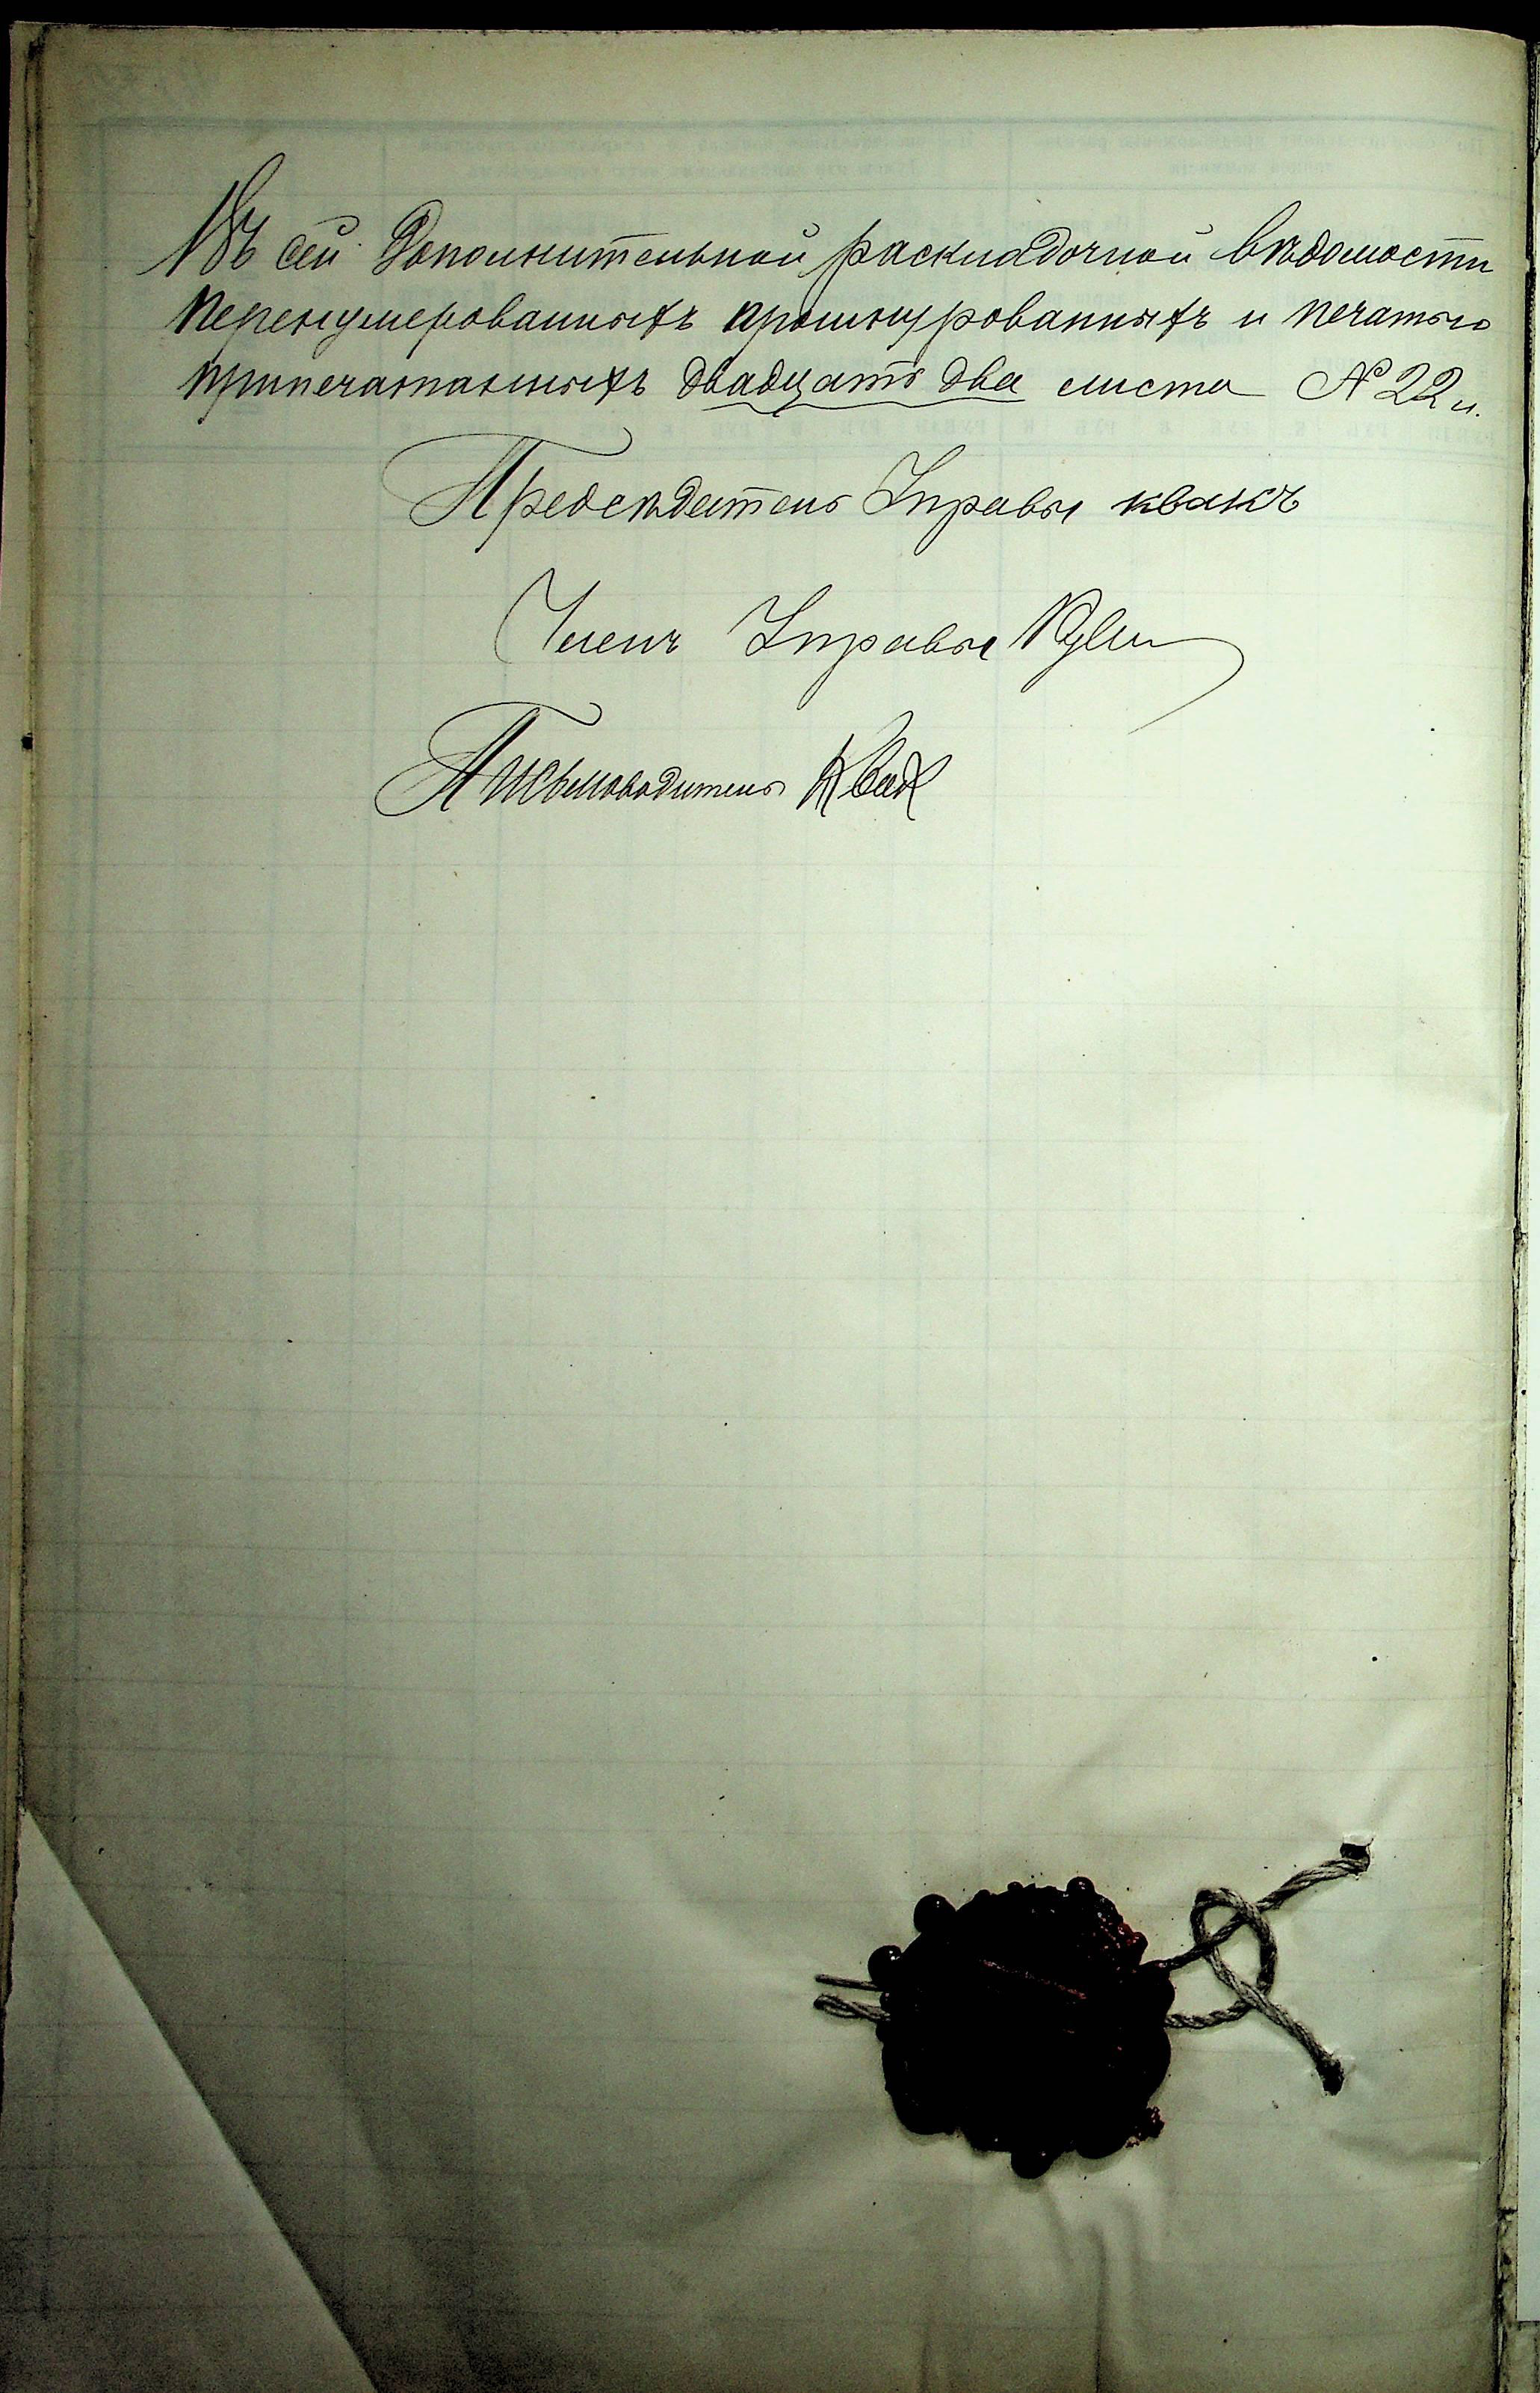 Въ сей Дополнительной раскладочной вѣдомости
перенумерованныхъ прошнурованныхъ и печатью
припечатанныхъ двадцать два листа № 22 л.
Предсѣдатель Управы
Членъ Управы
Письмоводитель